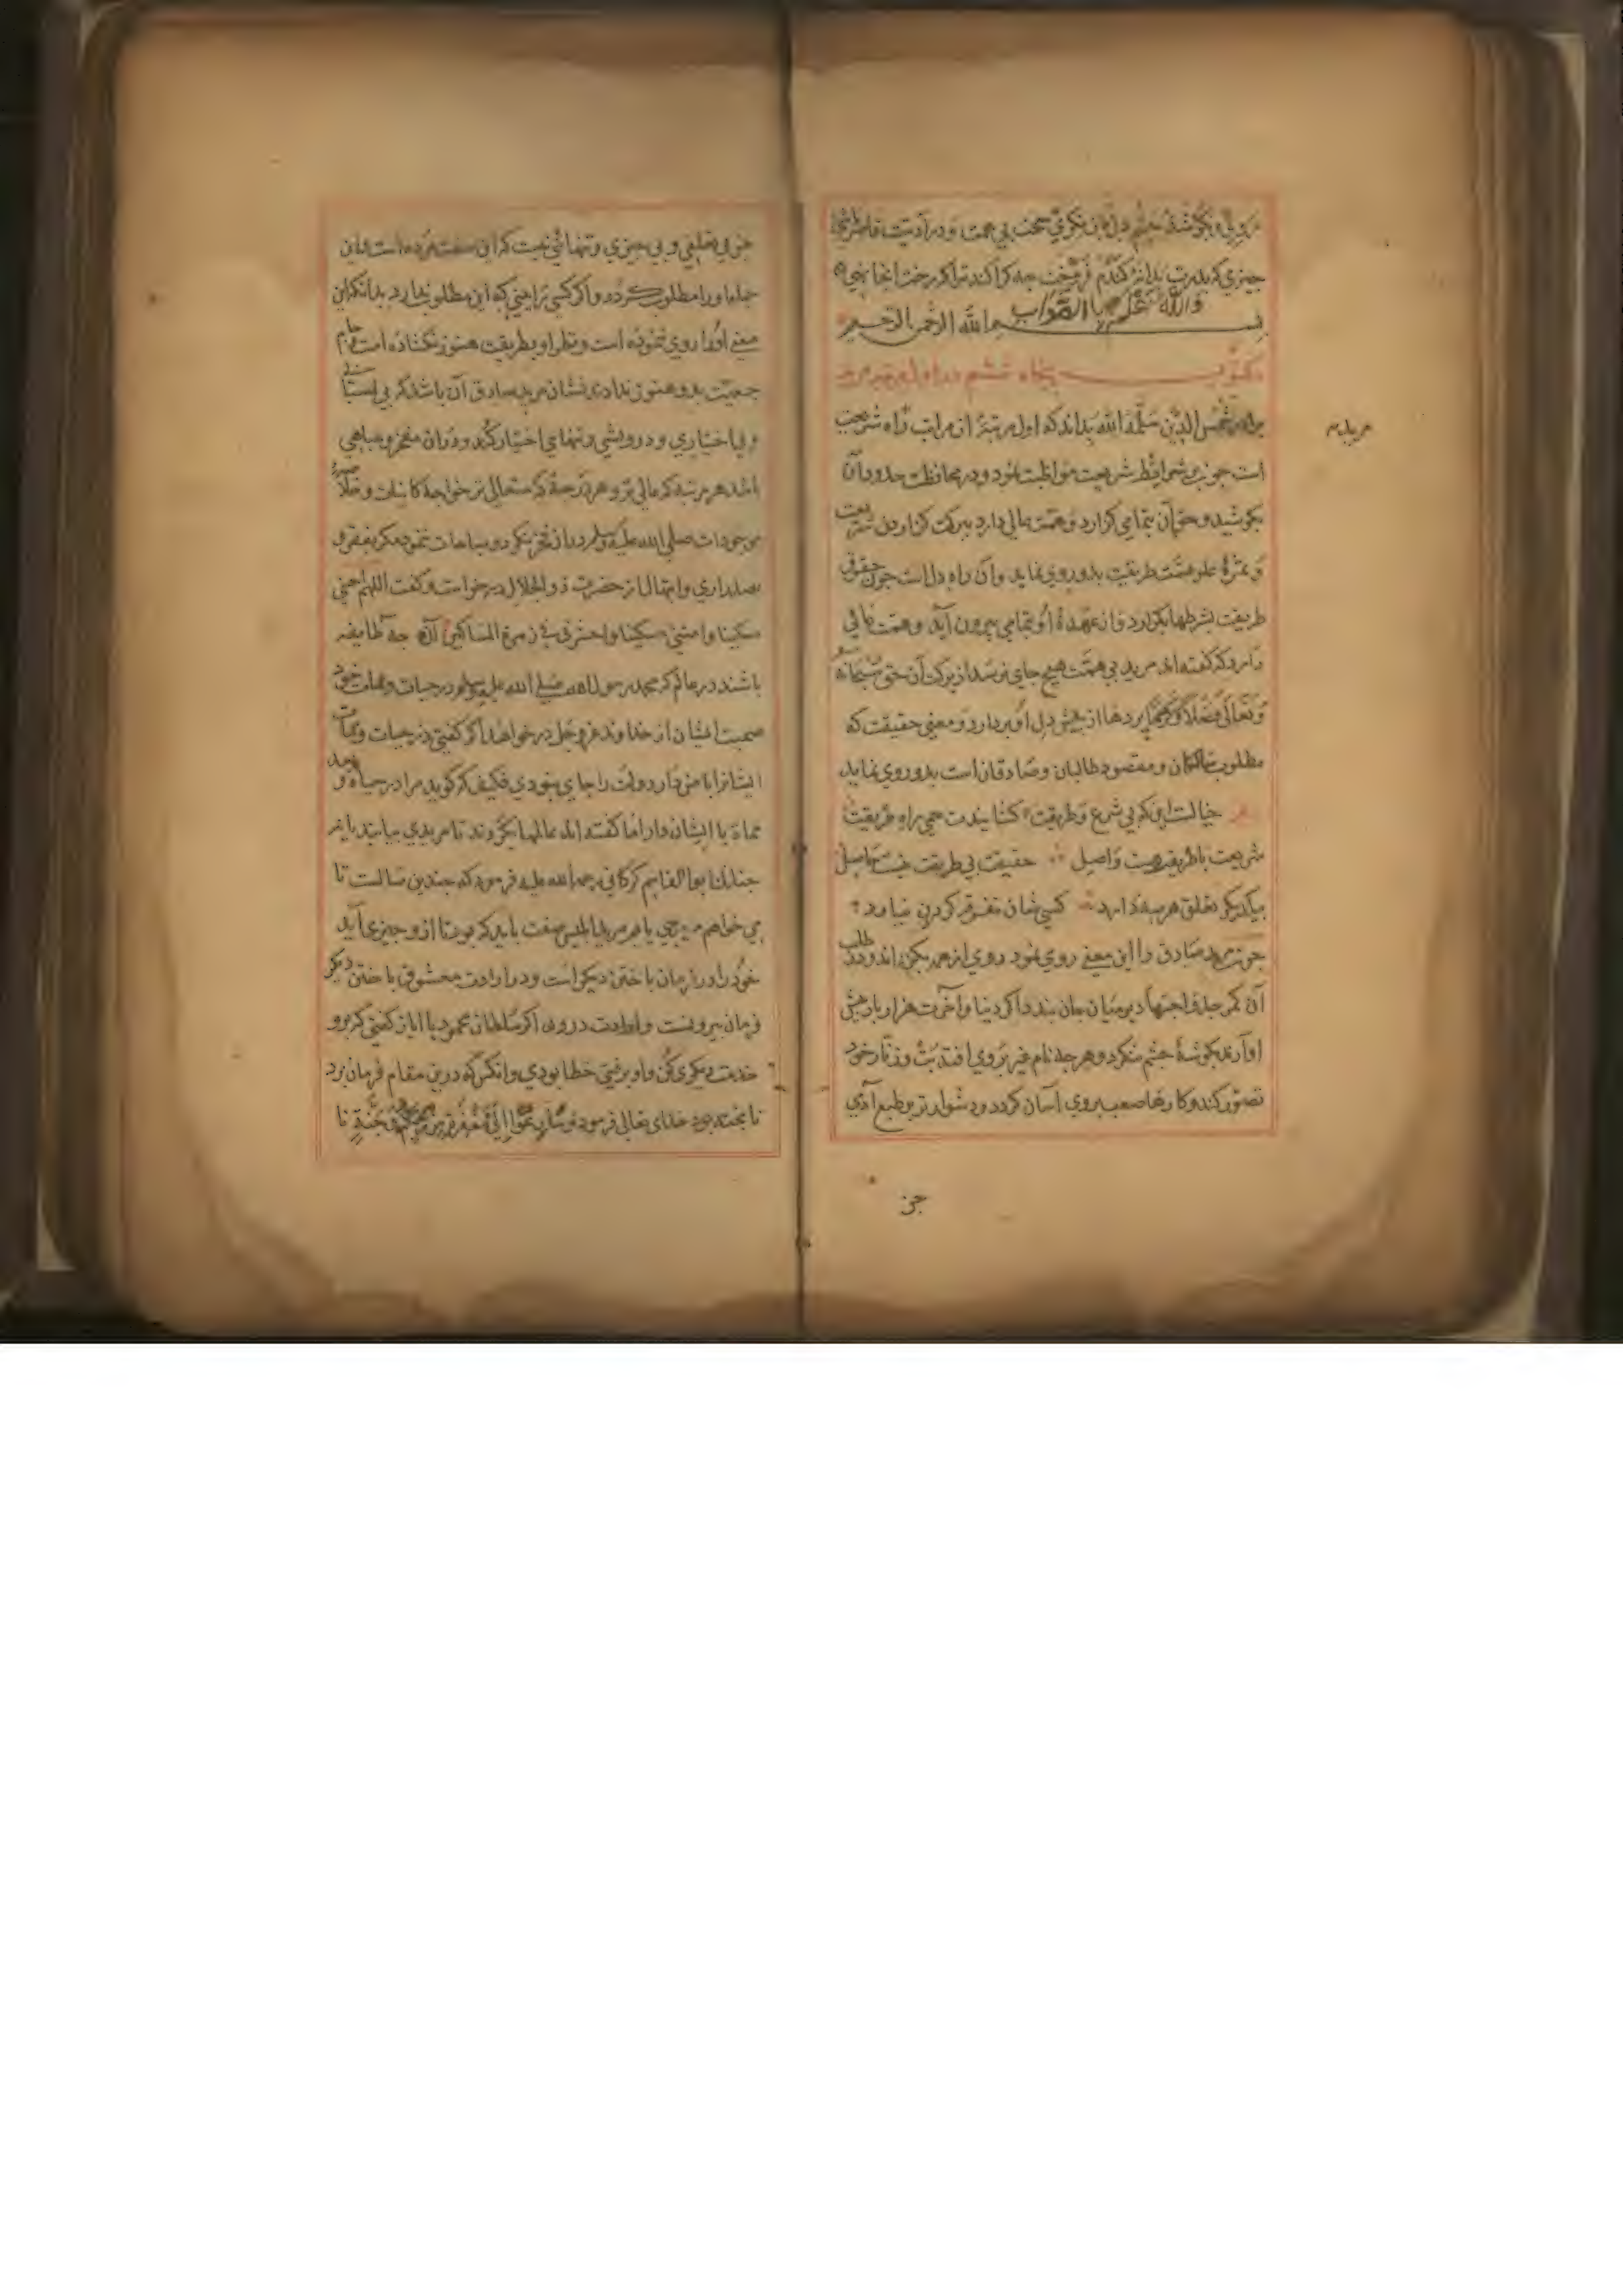 چیزی که پدرت بدانهٔ گندم فروخت چه کراکند تراکه رخت انجا نهی
والله اعلم بالصواب
بسم الله الرحمن الرحیم
مکتوب پنجاه ششم در اول مرتبه
برادرم شمس الدین سلمه الله بداند که اول مرتبهٔ از مراتب راه شریعت
مریدم
است چون بر شرایط شریعت مواظبت نمود و در محافظت حدود آن
بکوشید و حق آن بتمامی گزارد و همت عالی دارد ببرکت گزاردن شریعت
و ثمرهٔ علو همت طریقت بدو روی نماید وآن راه دل است چون حقوق
طریقت بشرطها بگزارد و از عهدهٔ او بتمامی بیرون آید و همت عالی
دارد که گفته اند مرید بی همت هیچ جای نرسد از برکت آن حق سبحانه
و تعالی فضلا و کرما پردها از پیش دل او بردارد و معنی حقیقت که
مطلوب سالکان و مقصود طالبان و صادقان است بدو روی نماید
خیالست این که بی شرع و طریقت کشایندت حمی راه طریقت
شریعت باطریقت هست واصل حقیقت بی طریقت نیست حاصل
بیکدیگر تعلق هر سه دارد کسی شان تفرقه کردن نیارد
چون مرید صادق را این معنی روی نمود روی از همه بگرداند و در طلب
آن کمر جد و اجتهاد بر میان جان بندد اگر دنیا و آخرت هزار بار پیش
او آرند بگوشهٔ چشم ننگرد و هرچه نام غیر بروی افتد بت و زنار خود
تصور کند و کارهاء صعب بروی آسان گردد و دشوارتر بر طبع آدمی
جز
جز بی تعلقی و بی چیزی و تنهائی نیست که این صفت مرده است
جملها و را مطلوب گردد و اگر کسی ترا بینی که این مطلوب ندارد بدانکه این
معنی او را روی ننموده است و نظر او بطریقت هنوز نکشاده است جام
جمعیت بدو هنوز نداده نشان مرید صادق آن باشد که بی
و بی اختیاری و درویشی و تنهای اختیار کند و دران مفخر و مباهی
باشد هر مرتبه که عالی تر و هر درجهٔ که متعالی تر خواجه کاینات و خلاصهٔ
موجودات صلی الله علیه وسلم بدان فخر نکرد و مباهات ننمود مگر بفقر و
بصد زاری و ابتهال از حضرت ذوالجلال درخواست و گفت اللهم احینی
مسکینا و امتنی مسکینا و احشرنی فی زمرة المساکین چه طایفه
باشند در عالم که محمد رسول الله صلی الله علیه وسلم در حیات و ممات خود
صحبت ایشان از خداوند عز وجل درخواهد اگر گفتی در حیات و ممات
ایشانرا با من دار دولت را جای بودی فکیف که گوید مرا در حیاة و بعد
مماة با ایشان دار اما گفته اند عالمها بگردند تا مریدی بیابند یا نه
چنانک ابو القاسم کرکانی رحمة الله علیه فرموده که چندین سالست تا
می خواهم مریدی یابم مرید ابلیس صفت باید که بود تا از و چیزی آید
خود را در فرمان باختن دیگر است و در ارادت معشوق باختن دیگر
فرمان بیرونست و ارادت درون اگر سلطان محمود با ایاز گفتی که برو
خدمت دیگری کن و او برفتی خطا بودی وانکس که درین مقام فرمان برد
نا پخته بود خدای تعالی فرمود و سارعوا الی مغفرة من ربکم و جنة تا